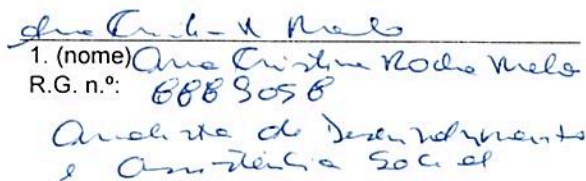 Ana Cristina R Melo
1. (nome) Ana Cristina Rocha Melo
R.G. n.º: 6889058
Analista de Desenvolvimento
e Assistência Social